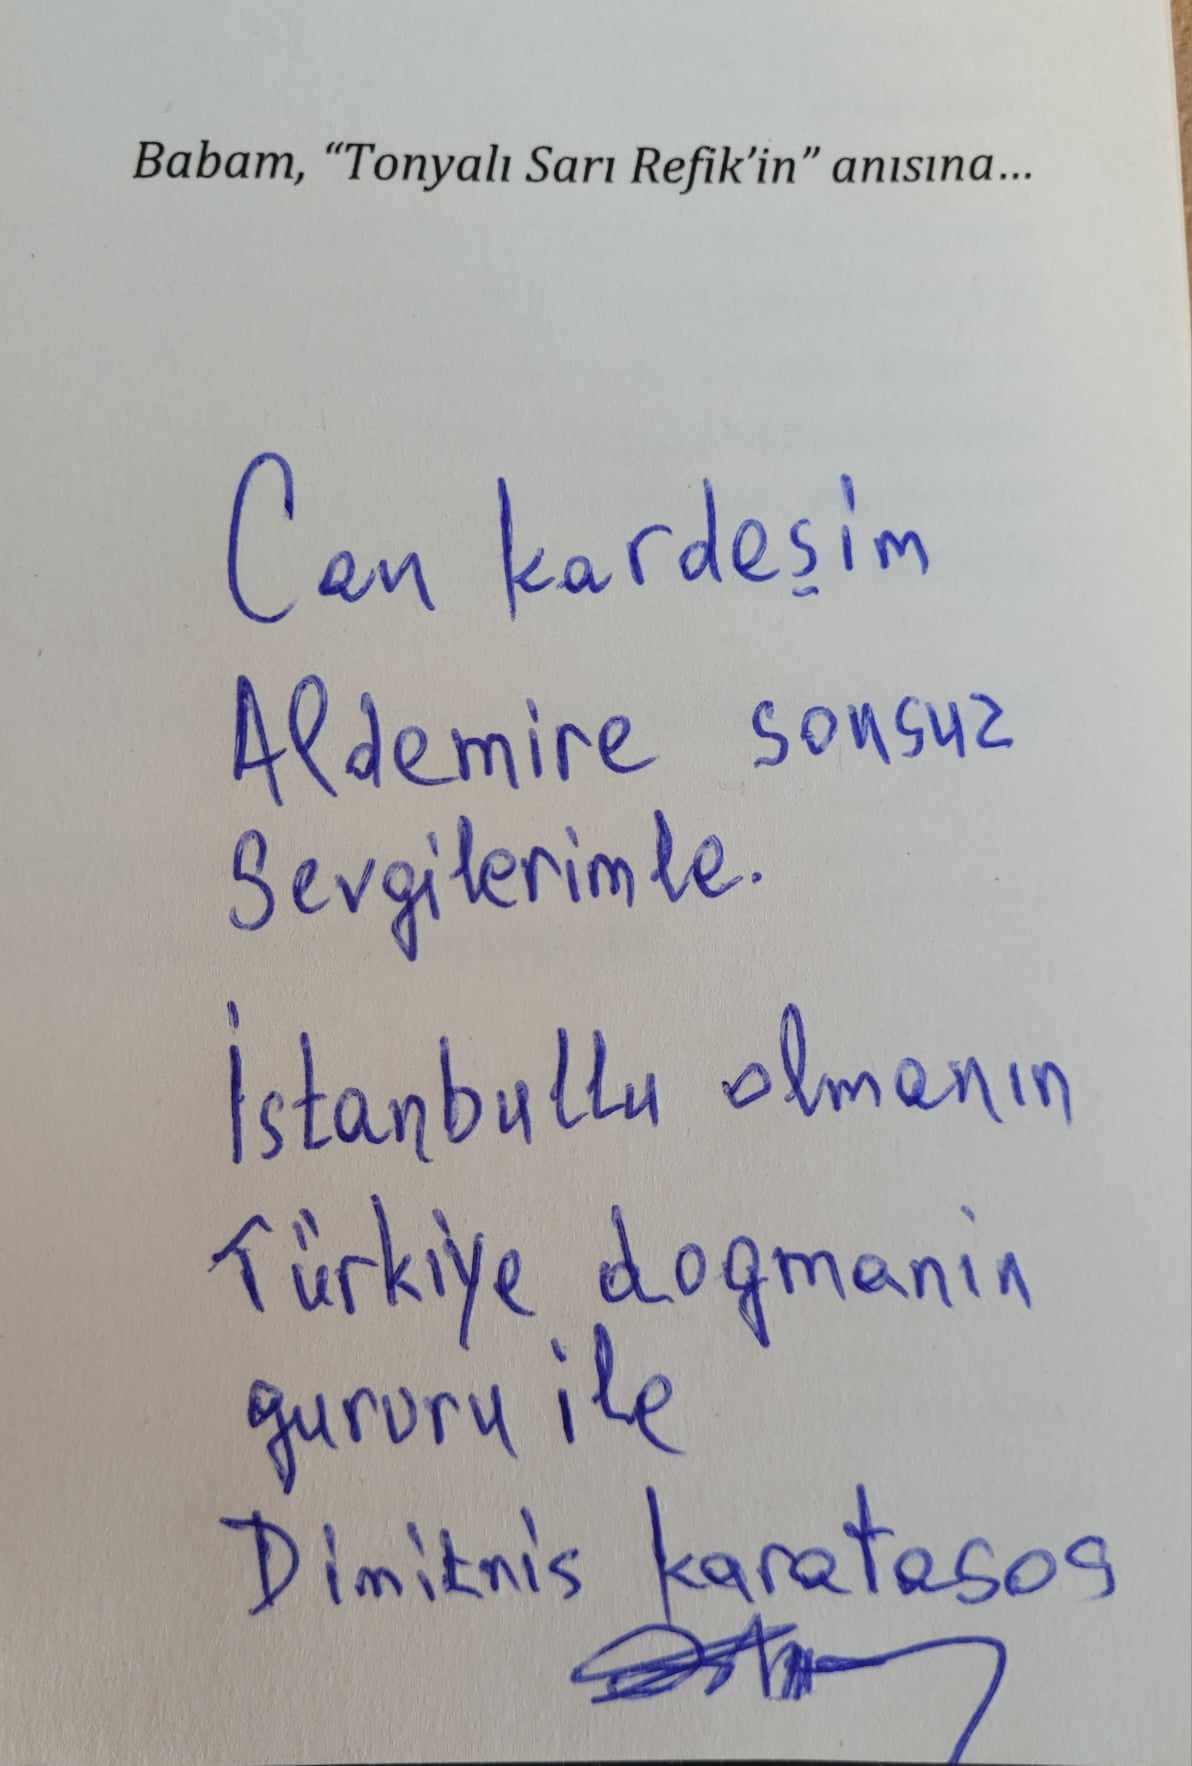 Babam, “Tonyalı Sarı Refik’in” anısına...
Can kardeşim
Aldemire sonsuz
Sevgilerimle.
İstanbullu olmanın
Türkiye dogmanin
gururu ile
Dimitris karatasos